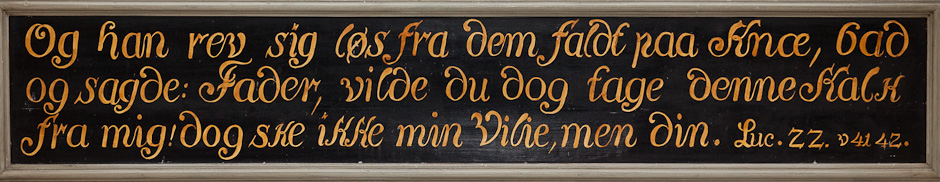 Og han rev sig løs fra dem faldt paa Knæ, bad
og sagde: Fader, vilde du dog tage denne Kalk
fra mig! dog ske ikke min Vilie, men din. Luc. 22. v 41 42.